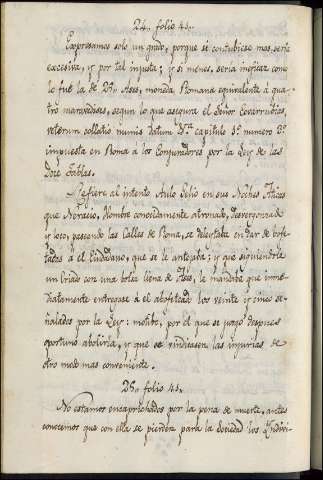 24. folio 43.
Expresamos solo un grado, porque si contubiese mas seria
excesiva, y por tal injusta; y si menos, seria ineficaz como
lo fué la de 25. Ases, moneda Romana equivalente á qua-
tro maravedises, segun lo que asegura el Señor Coverrubias,
veterum collatio numis 
capitulo 3º numero 2º
impuesta en Roma á los Conjuradores por la Ley de las
Doce Tablas.
Refiere al intento Aulo Gelio en sus Noches Aticas
que Neracio, Hombre conocidamente atronado, desvergonzado
y loco, paseando las Calles de Roma, se deleitaba en dar de bofe-
tadas á el Ciudadano, que se le antojaba; y que siguiendole
un Criado con una bolsa llena de Ases, le mandaba que inme-
diatamente entregase á el abofeteado los veinte y cinco se-
ñalados por la Ley: motivo, por el que se juzgó despues
oportuno abolirla, y que se vindicasen las injurias de
otro modo mas conveniente.
25. folio 43.
No estamos encaprichados por la pena de muerte, antes
conocemos que con ella se pierden para la Sociedad los Yndivi-